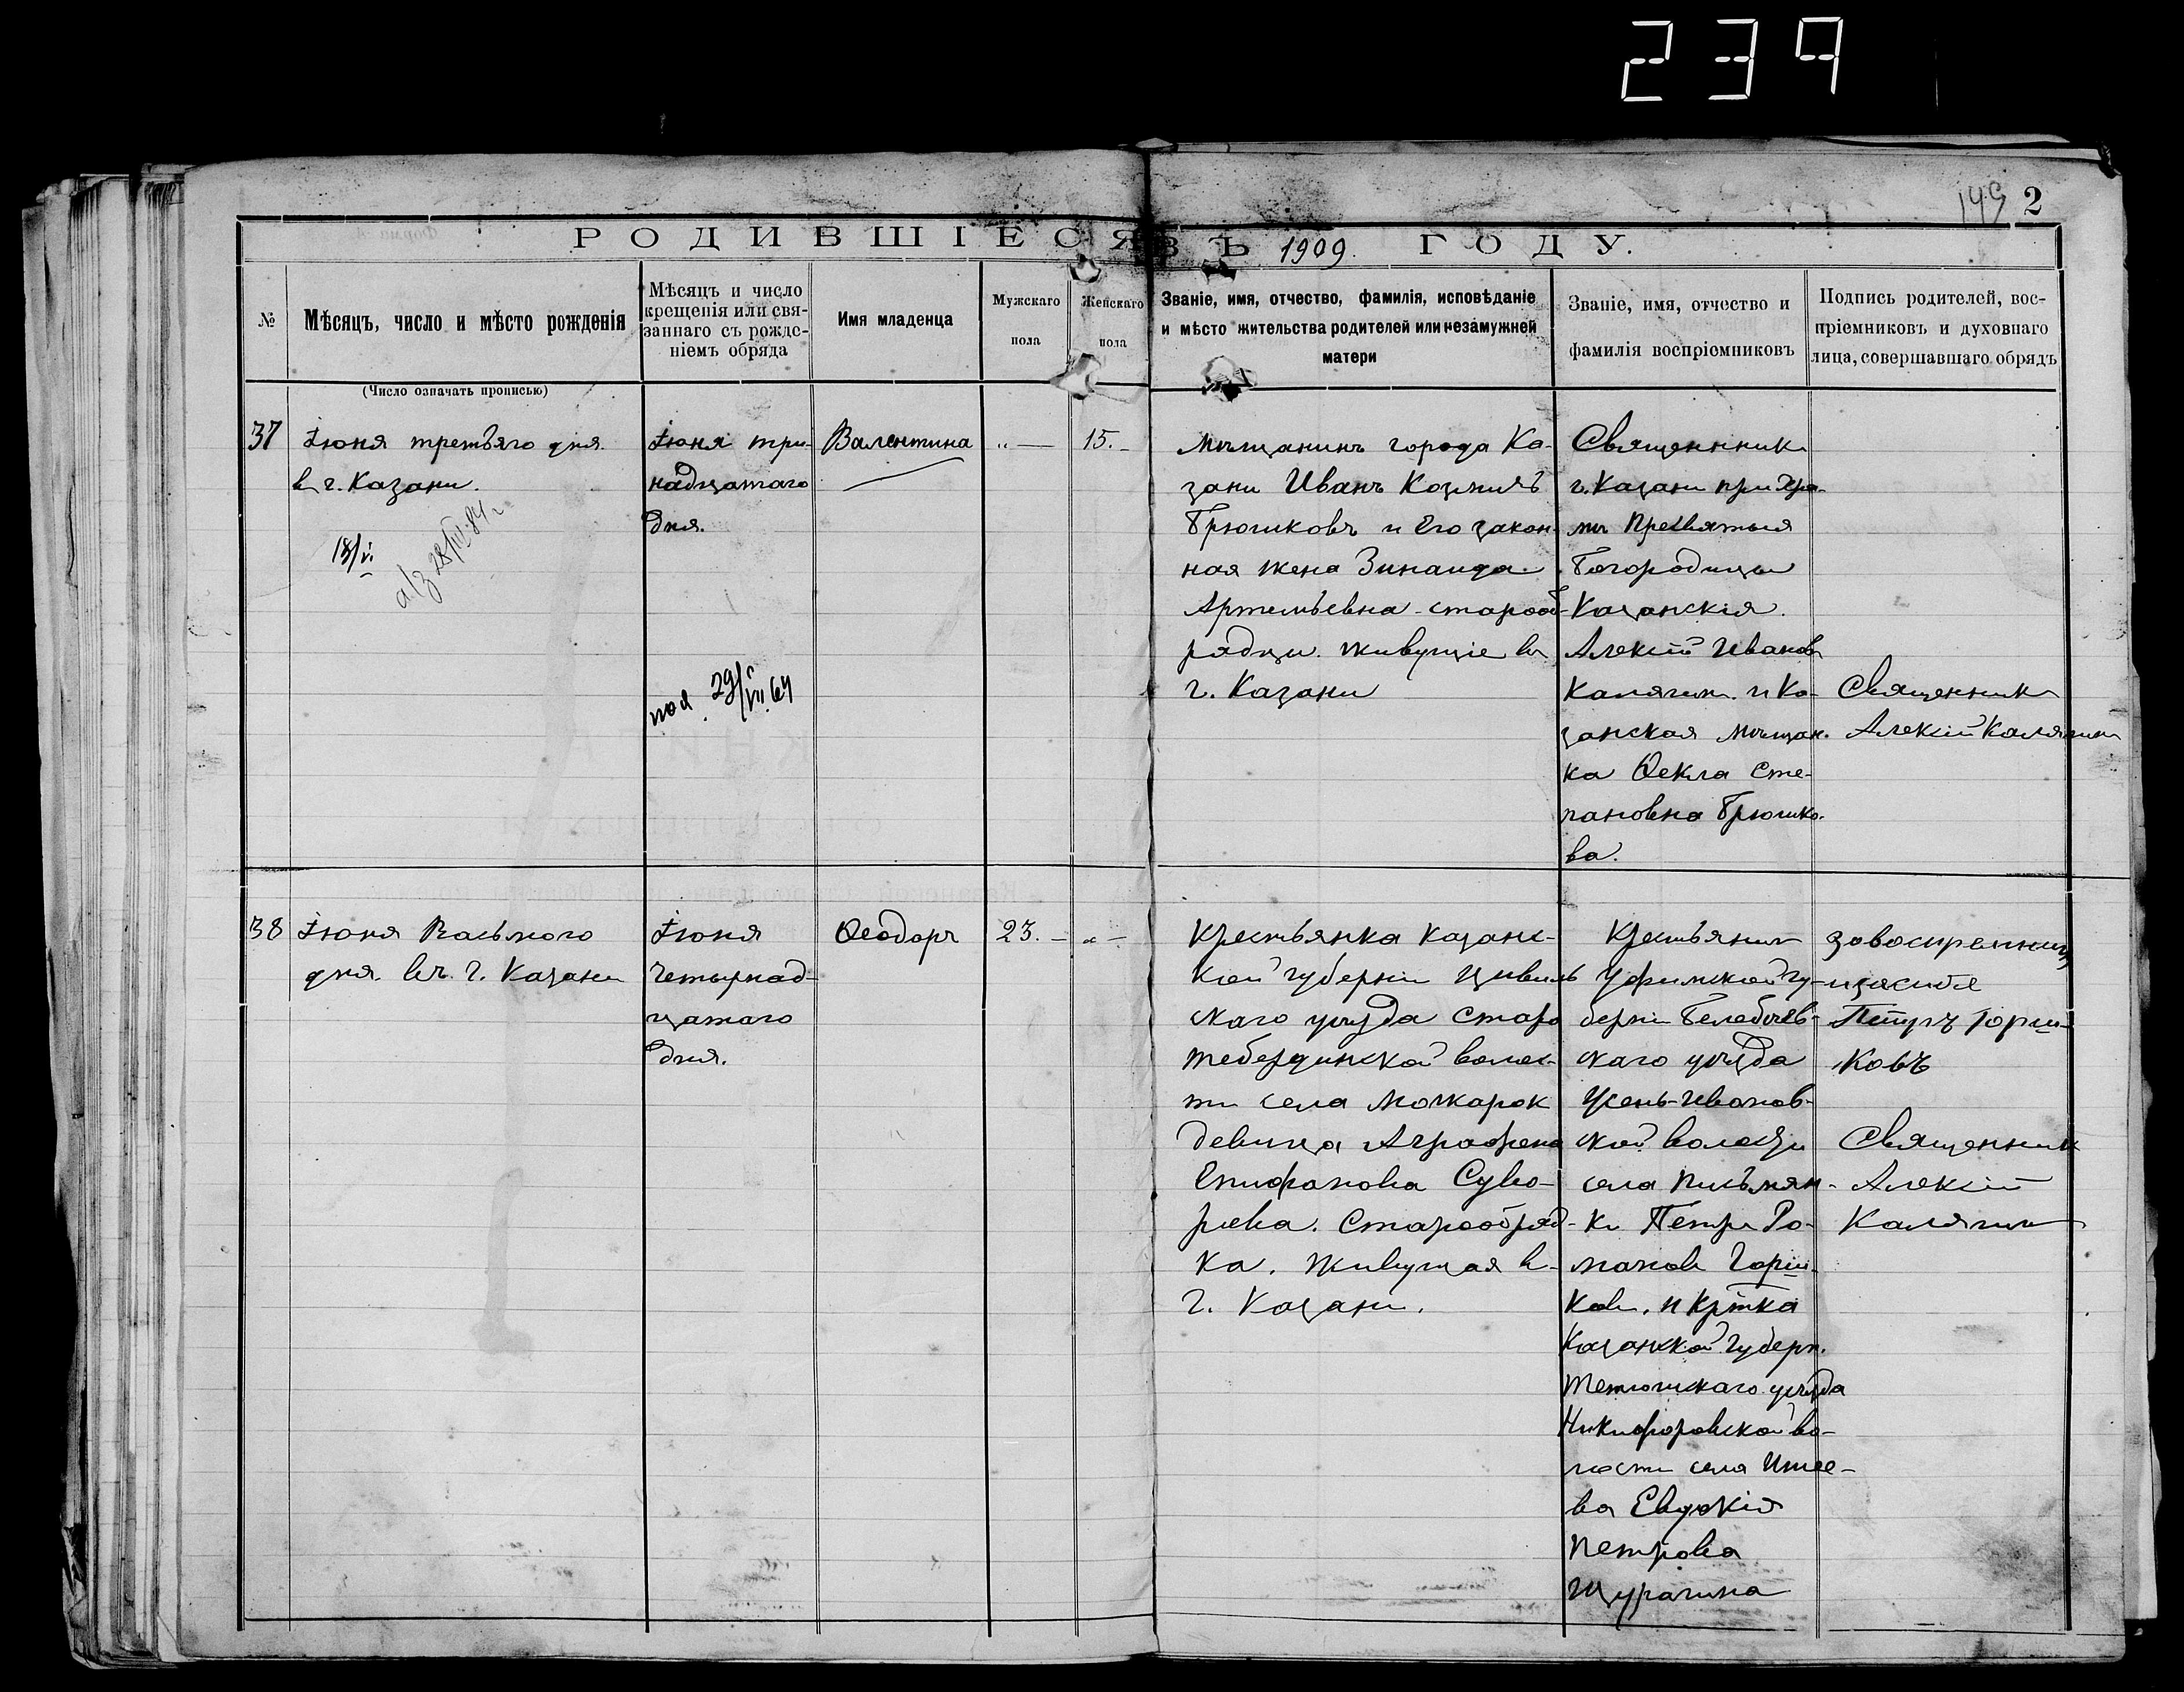 239
149 2
РОДИВШІЕСЯ ВЪ 1909 ГОДУ.
№
Мѣсяцъ, число и мѣсто рожденія
Мѣсяцъ и число
крещенія или свя-
заннаго съ рожде-
ніемъ обряда
Имя младенца
Мужскаго
пола
Женскаго
пола
Званіе, имя, отчество, фамилія, исповѣданіе
и мѣсто жительства родителей или незамужней
матери
Званіе, имя, отчество и
фамилія воспріемниковъ
Подпись родителей, вос-
пріемниковъ и духовнаго
лица, совершавшаго обрядъ
(Число означать прописью)
37
Іюня третьяго дня.
в г. Казани.
Іюня три-
надцатаго
дня.
Валентина
„ —
15. –
мѣщанинъ города Ка-
зани Иванъ Козмичъ
Брюшковъ и Его закон-
ная жена Зинаида
Артемьевна - старооб-
рядцы. живущіе въ
г. Казани
Священник
г. Казани при Хра-
мѣ Пресвятыя
Богородицы
Казанскія.
Алексѣй Иванов
Калягин. и Ка-
занская мѣщан-
ка Ѳекла Сте-
пановна Брюшко-
ва.
Священник
Алексѣй Калягин
38
Іюня Восьмого
дня. въ. г. Казани
Іюня
Четырнад-
цатаго
дня.
Ѳеодоръ
23. –
„ –
Крестьянка Казанс-
кой губерніи Цивиль
скаго уѣзда Старо
тебердинской волос-
ти села Мочкарок
девица Аграфена
Епифанова Суво-
рова. Старообряд-
ка. Живущая в-
г. Казани.
Крестьянин
Уфимской гу-
берніи Белебеев-
скаго уѣзда
Усень-Иванов-
ской волости
села Письмян-
ки Петр Ро-
манов Горш-
ков. и Кр̃тка
Казанской Губерн.
Тетюшскаго уѣзда
Никифоровской во-
лости села Ишее-
ва Евдокія
Петрова
Щурагина
Петръ Горш-
ковъ
Священник
Алексѣй
Калягин